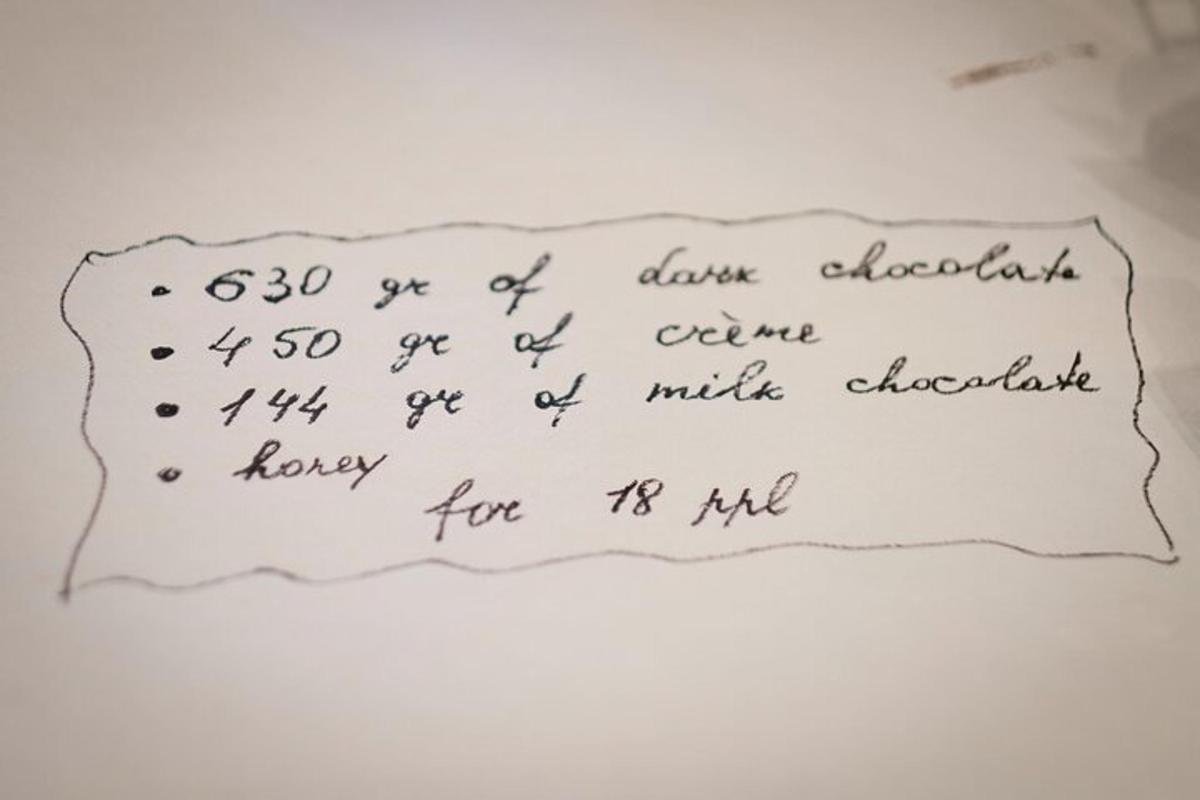 • 630 gr of dark chocolate
• 450 gr of crème
• 144 gr of milk chocolate
• honey
for 18 ppl